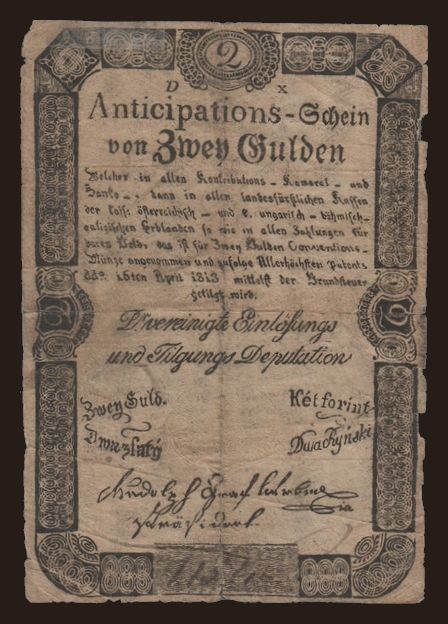 2
D X
Anticipations-Schein
von Zwey Gulden
Welcher in allen Kontributions- Kameral- und
Banko-, dann in allen landesfürstlichen Kassen
der kais. österreichisch- und k. ungarisch- böhmisch-
galizischen Erblanden so wie in allen Zahlungen für
bares Geld, das ist für Zwey Gulden Conventions-
Münze angenommen und zufolge Allerhöchsten Patents
ddo. 16ten April 1813 mittelst der Grundsteuer
getilgt wird.
2 2
Die vereinigte Einlösungs
und Tilgungs Deputation
Zwey Guld. Két forint
Dwa zlatý Dwa Ryński
Rudolph Graf
Präsident